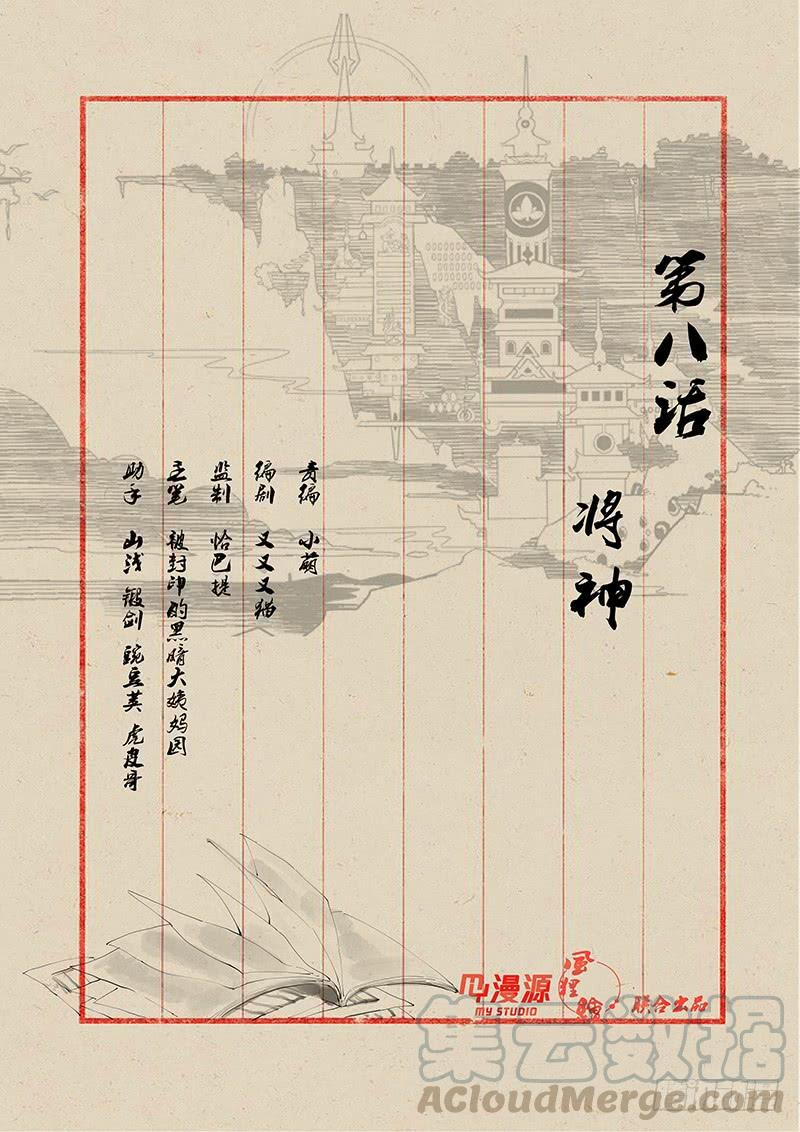 第八话
将神
责编 小萌
编剧 又又又猫
监制 恰巴提
主笔 被封印的黑暗大姨妈园
助手 山浅 锻剑 豌豆荚 虎皮哥
漫源
MY STUDIO
風狸
联合出品
集云数据
ACloudMerge.com